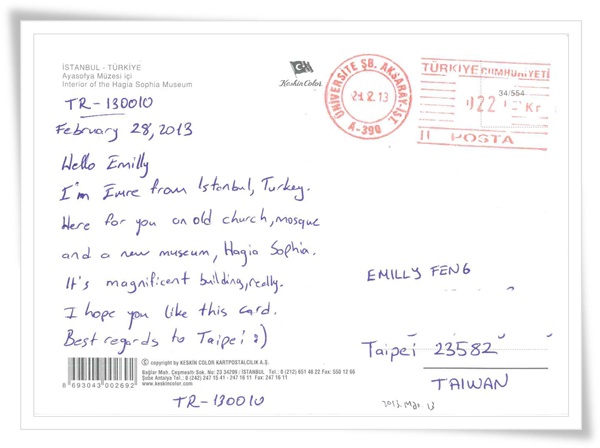 İSTANBUL - TÜRKİYE
Ayasofya Müzesi içi
Interior of the Hagia Sophia Museum
Keskin Color
ÜNİVERSİTE ŞB. AKSARAY-İST.
A-390
TÜRKİYE CUMHURİYETİ
34/554
Kr
POSTA
TR-130010
February 28, 2013
Hello Emilly
I'm Emre from Istanbul, Turkey.
Here for you an old church, mosque
and a new museum, Hagia Sophia.
It's magnificent building, really.
I hope you like this card.
Best regards to Taipei :)
EMILLY FENG
Taipei 23582
TAIWAN
2013. Mar. 13
© copyright by KESKİN COLOR KARTPOSTALCILIK A.Ş.
Bağlar Mah. Çeşmealtı Sok. No: 23 34209 / İSTANBUL Tel.: 0 (212) 651 48 22 Fax: 550 12 66
Şube Antalya Tel.: 0 (242) 247 15 41 - 247 16 11 Fax: 247 16 11
www.keskincolor.com
8 693043 002692
TR-130010